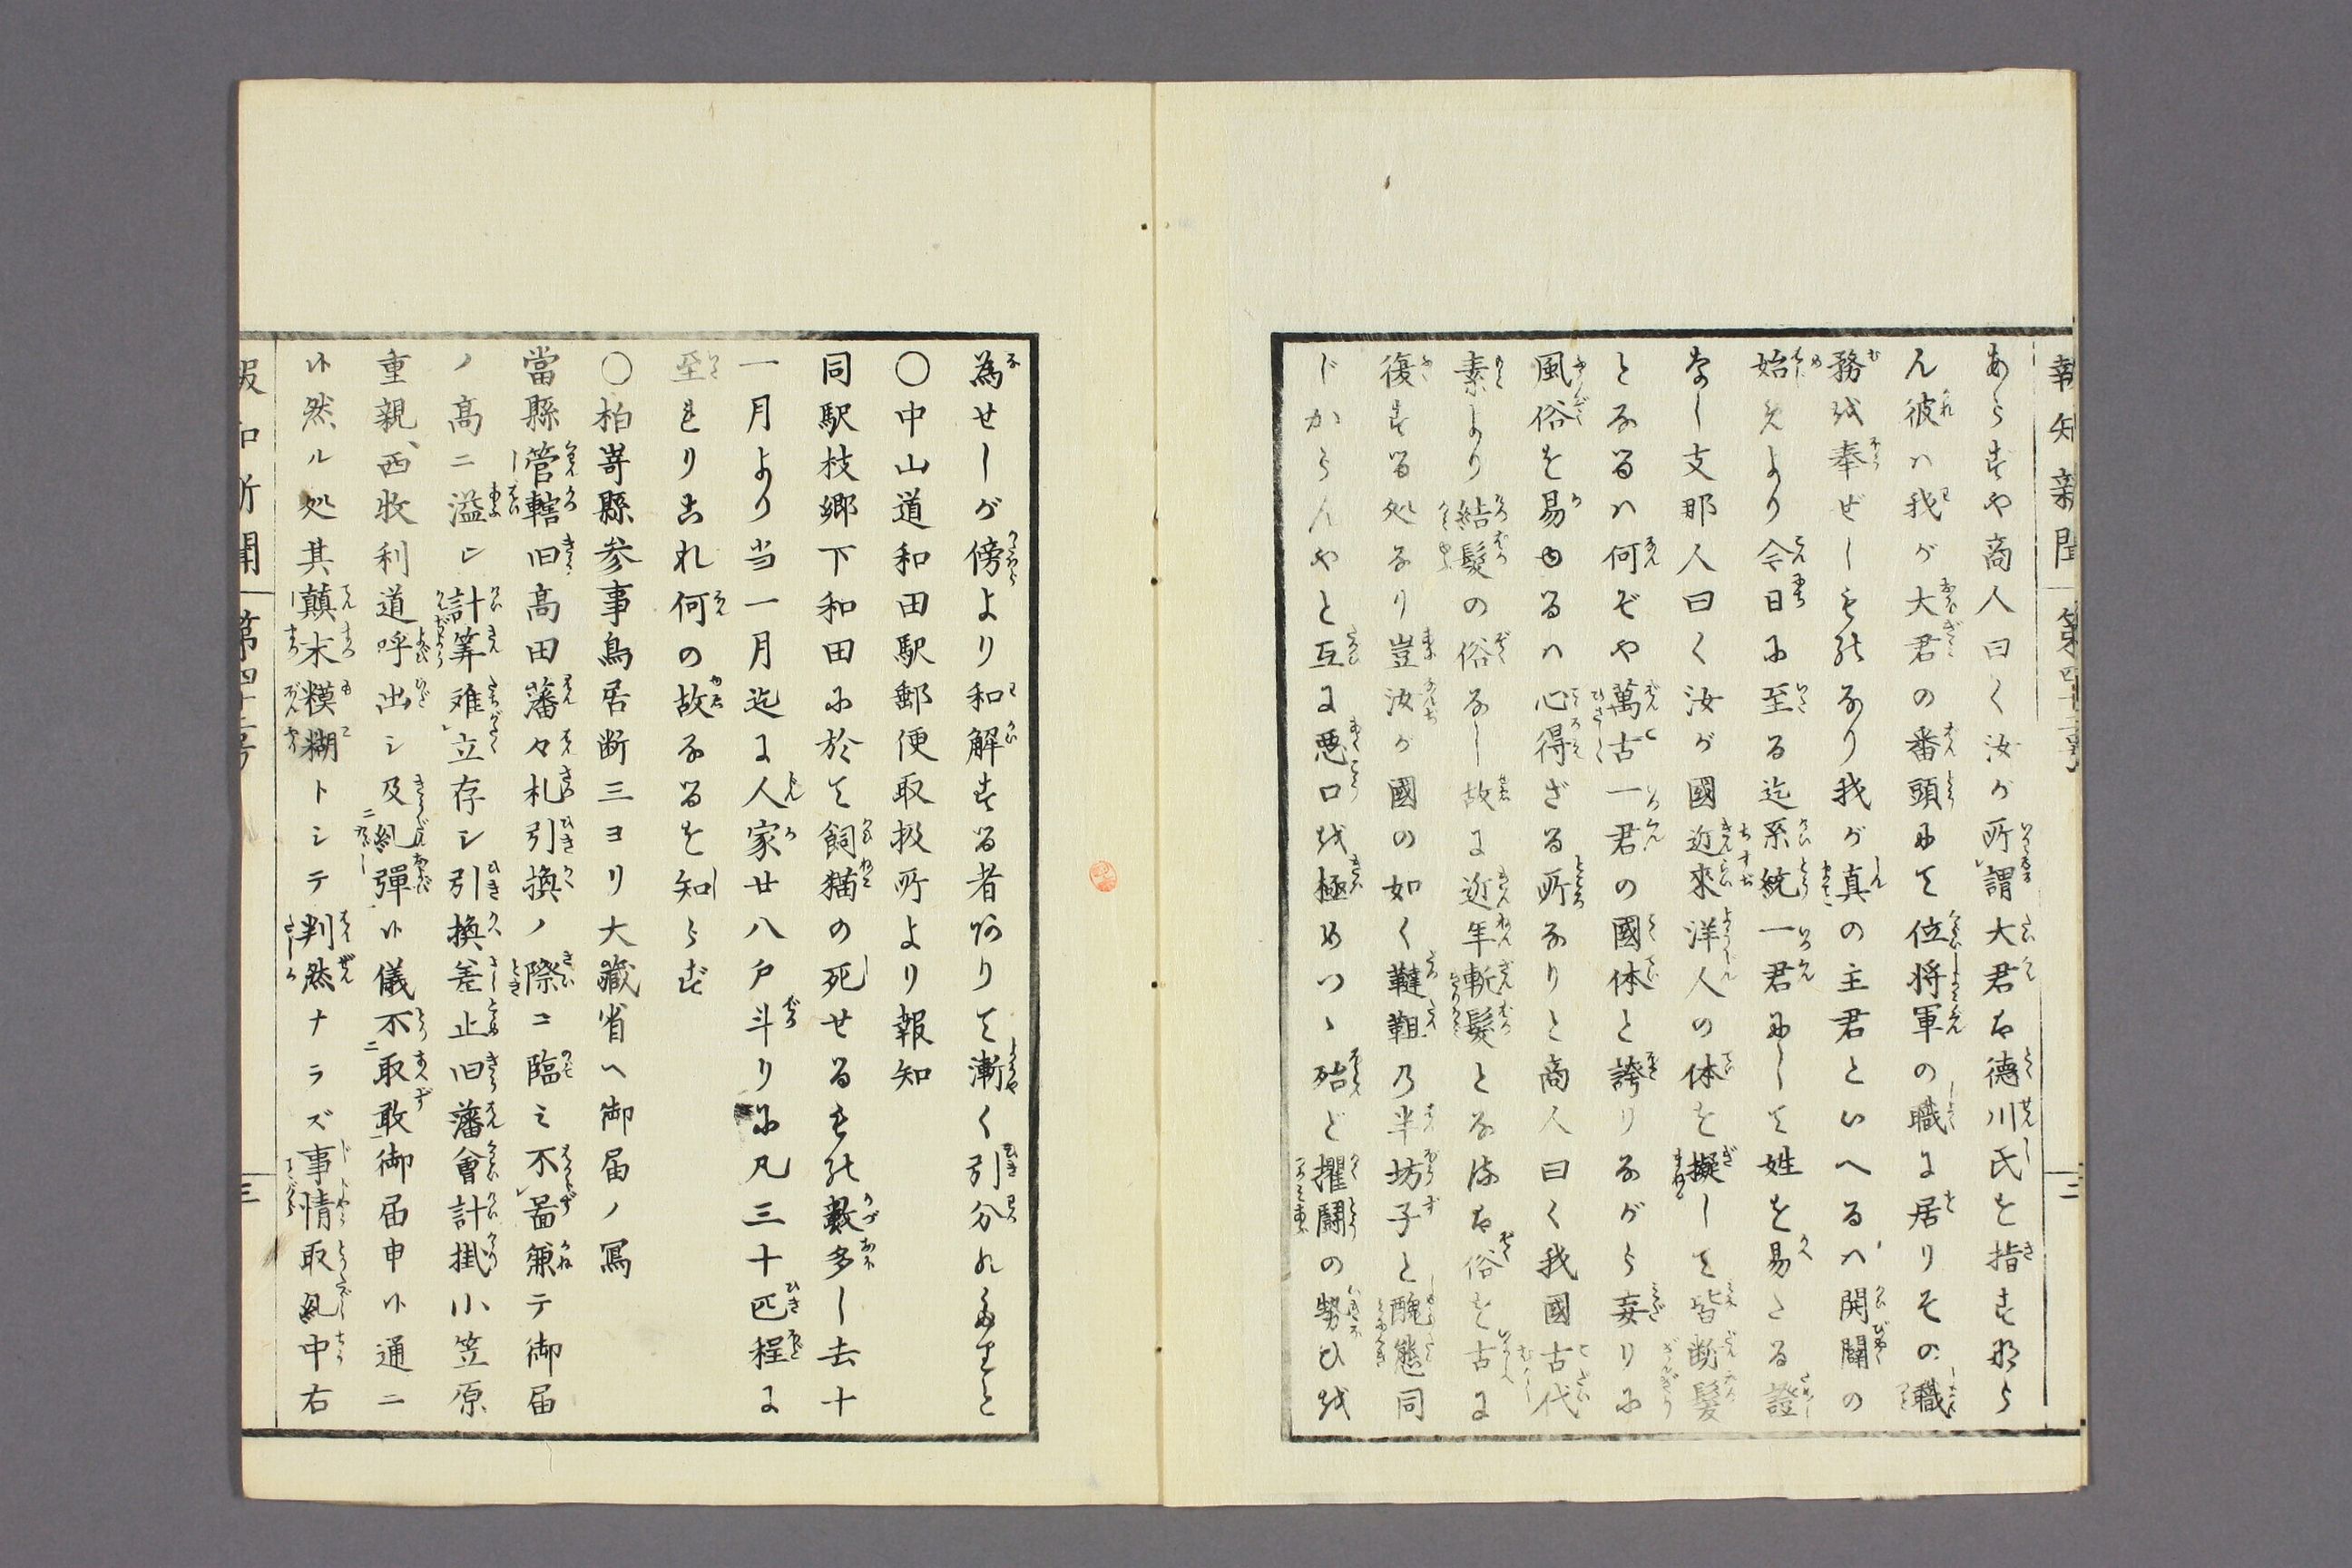 報知新聞 第四十三号 二
あらずや商人曰く汝が所謂大君は徳川氏を指すなら
ん彼ハ我が大君の番頭にて位将軍の職に居りその職
務を奉ぜしものなり我が真の主君といへるハ開闢の
始めより今日に至る迄系統一君にして姓を易たる證
なし支那人曰く汝が國近來洋人の体を擬して皆断髪
となるハ何ぞや萬古一君の國体と誇りながら妄りに
風俗を易ゆるハ心得ざる所なりと商人曰く我國古代
素より結髮の俗なし故に近年斬髮となすは俗を古に
復する処なり豈汝が國の如く韃靼乃半坊子と醜態同
じからんやと互に悪口を極めつゝ殆ど攫鬪の勢ひを
為せしが傍より和解する者ありて漸く引分れたりと
〇中山道和田駅郵便取扱所より報知
同駅枝郷下和田に於て飼猫の死せるもの數多し去十
一月より当一月迄に人家廿八戸斗りに凡三十匹程に
至れり是れ何の故なるを知らず
〇柏嵜縣参事鳥居断三ヨリ大藏省ヘ御届ノ寫
當縣管轄旧高田藩々札引換ノ際ニ臨ミ不啚兼テ御届
ノ高ニ溢レ計算难立存シ引換差止旧藩會計掛小笠原
重親、西收利道呼出シ及糺彈候儀不取敢御届申候通ニ
候然ル処其顛末糢糊トシテ判然ナラズ事情取糺中右
報知新聞 第四十三号 三